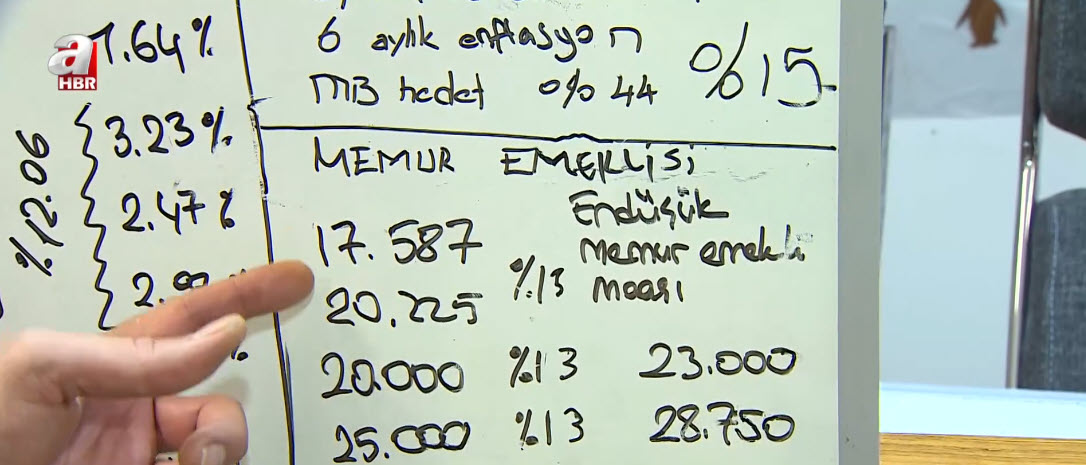 a
HBR
1.64%
3.23%
2.47%
%12.06
6 aylık enflasyon
MB hedef %44
%15
MEMUR EMEKLİSİ
17.587
20.225
%13
Endüşük
memur emekli
maaşı
20.000 %13 23.000
25.000 %13 28.750